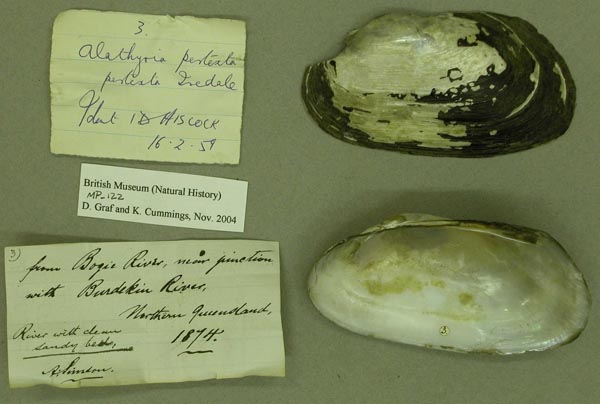 3.
Alathyria pertexta
pertexta Iredale
Ident ID HISCOCK
16·2·59
British Museum (Natural History)
MP-122
D. Graf and K. Cummings, Nov. 2004
3)
from Bogie River, near junction
with Burdekin River,
Northern Queensland,
River with clean
sandy beds,
1874.
Simson.
3